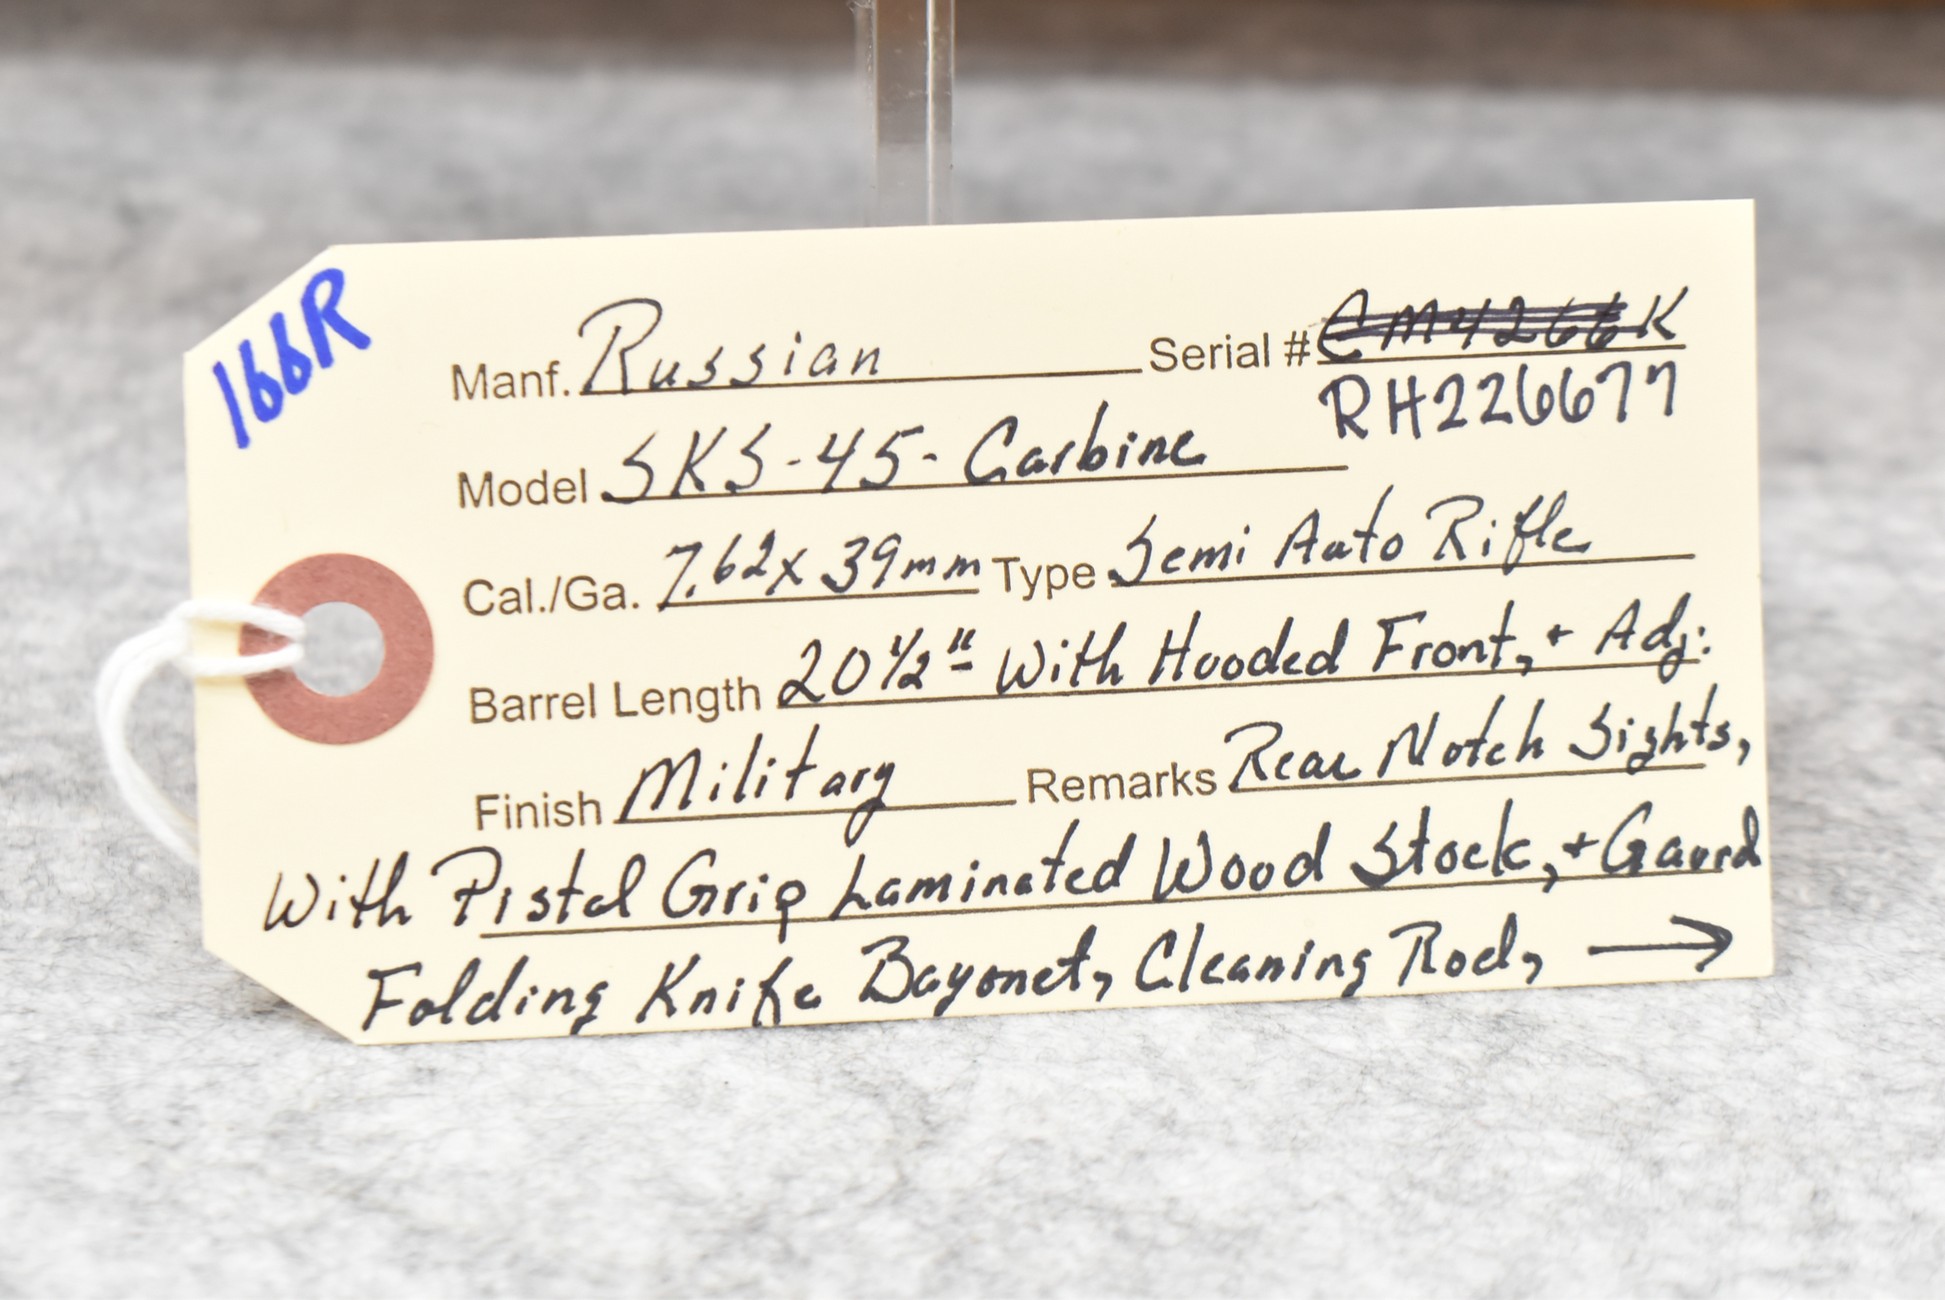 166R
Manf. Russian Serial # CM4266K
RH226677
Model SKS-45- Carbine
Cal./Ga. 7.62x39mm Type Semi Auto Rifle
Barrel Length 20 1/2" With Hooded Front, + Adj:
Finish Military Remarks Rear Notch Sights,
With Pistol Grip Laminated Wood Stock, + Gaurd
Folding Knife Bayonet, Cleaning Rod, →